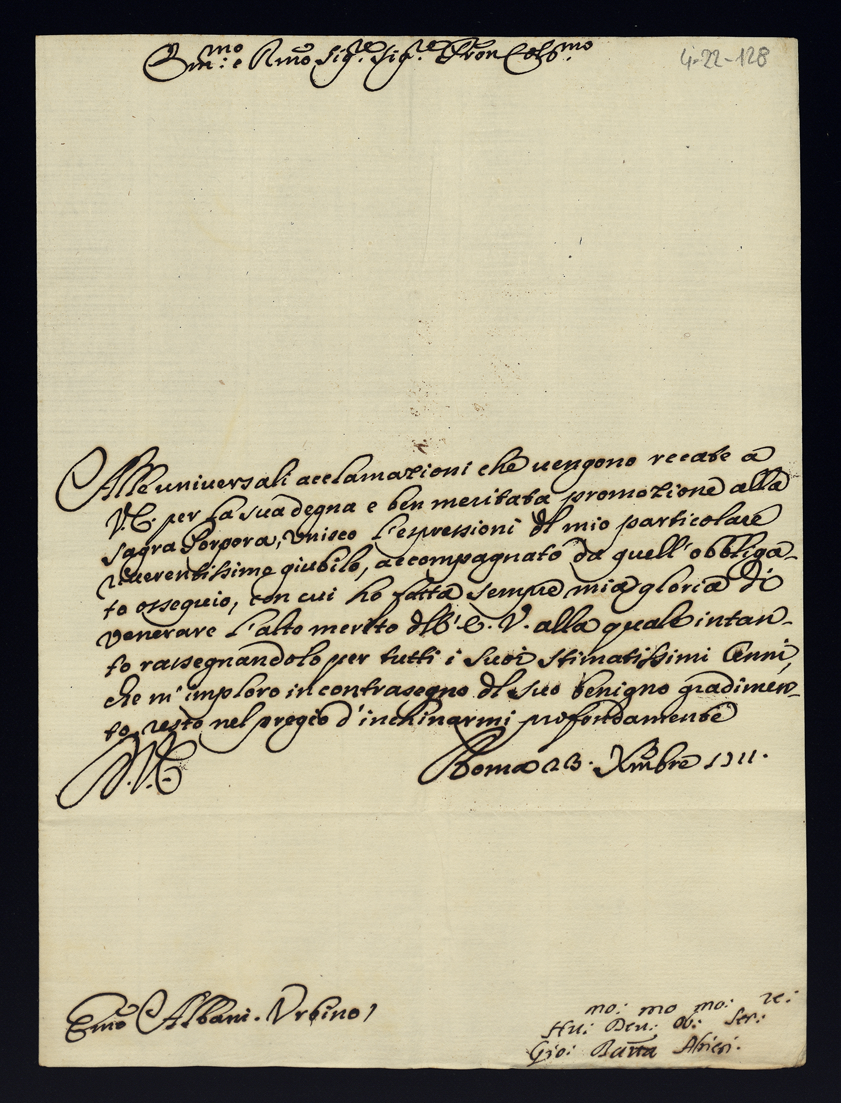 Em.mo e Rmo Sig.re Sig.re Pron Col.mo
4-22-128
Alle universali acclamazioni che vengono recate a
V.E. per la sua degna e ben meritata promozione alla
Sagra Porpora, unisco l'espressioni dl mio particolare
riverentissimo giubilo, accompagnato da quell'obbliga-
to ossequio, con cui ho fatta sempre mia gloria di
venerare l'alto merito dll'E.V. alla quale intan-
to rassegnandolo per tutti i suoi stimatissimi Cenni,
che m'imploro in contrasegno dl suo benigno gradimen-
to, resto nel pregio d'inchinarmi profondamente
D.V.E. Roma 23. Xmbre 1711.
Emo Albani. Urbino
Hu:mo Deu:mo Ob:mo Ser:re
Gio: Batta